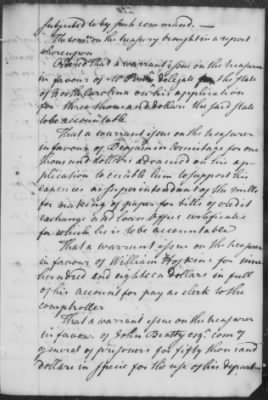 subjected to by such command. —
The comee on the treasury brought in a report
whereupon
Ordered that a warrant issue on the treasurer
in favour of Mr Penn delegate for the State
of North Carolina on his application
for three thousand dollars the said state
to be accountable
That a warrant issue on the treasurer
in favour of Benjamin Armitage for one
thousand dollars advanced on his ap-
plication to enable him to support his
expences as superintendant of the mills
for making of paper for bills of credit
exchange and loan office certificates
for which he is to be accountable
That a warrant issue on the treasurer
in favour of William Hoskins for nine
hundred and eighteen dollars in full
of his account for pay as clerk to the
comptroller
That a warrant issue on the treasurer
in favour of John Beatty esqr. com y
general of prisoners for fifty thousand
dollars in specie for the use of his depart